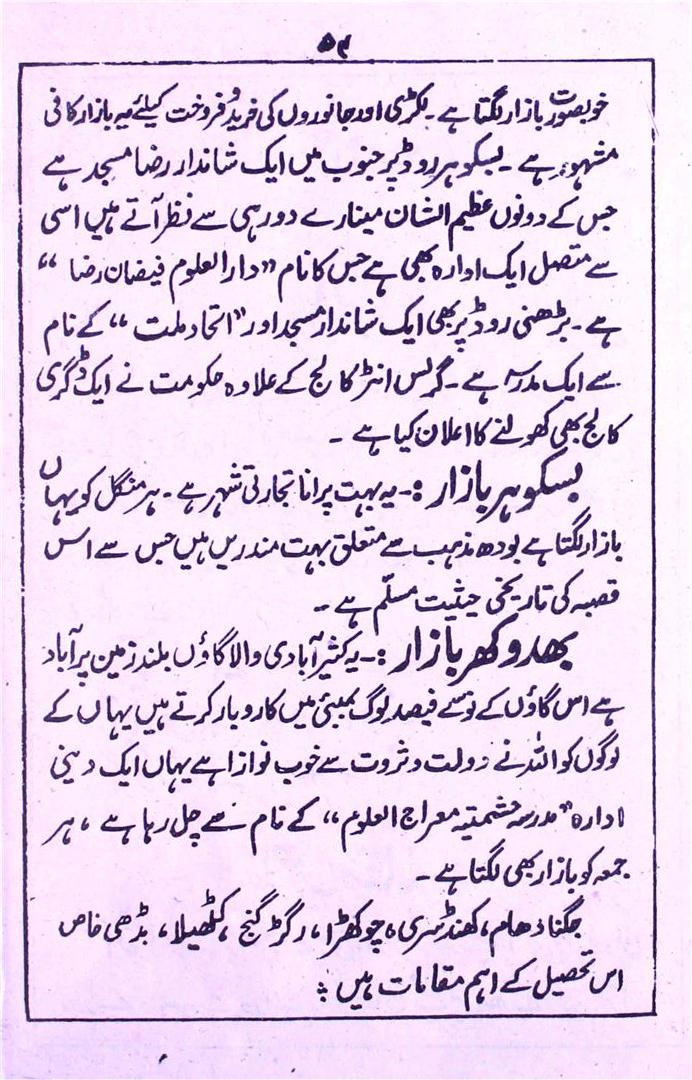 ۵۴
خوبصورت بازار لگتا ہے۔ بکری اور جانوروں کی خرید و فروخت کیلئے یہ بازار کافی
مشہور ہے۔ بسکوہر روڈ پر جنوب میں ایک شاندار رضا مسجد ہے
جس کے دونوں عظیم الشان مینارے دور ہی سے نظر آتے ہیں اسی
سے متصل ایک ادارہ بھی ہے جس کا نام "دارالعلوم فیضان رضا"
ہے۔ بڑھنی روڈ پر بھی ایک شاندار مسجد اور "اتحاد ملت" کے نام
سے ایک مدرسہ ہے۔ گرلس انٹر کالج کے علاوہ حکومت نے ایک ڈگری
کالج بھی کھولنے کا اعلان کیا ہے ۔
بسکوہر بازار :۔ یہ بہت پرانا تجارتی شہر ہے۔ ہر منگل کو یہاں
بازار لگتا ہے بودھ مذہب سے متعلق بہت مندریں ہیں جس سے اس
قصبہ کی تاریخی حیثیت مسلّم ہے ۔
بھدوکھر بازار :۔ یہ کثیر آبادی والا گاؤں بلند زمین پر آباد
ہے اس گاؤں کے نوے فیصد لوگ بمبئی میں کاروبار کرتے ہیں یہاں کے
لوگوں کو اللہ نے دولت و ثروت سے خوب نوازا ہے یہاں ایک دینی
ادارہ "مدرسہ حشمتیہ معراج العلوم" کے نام سے چل رہا ہے ، ہر
جمعہ کو بازار بھی لگتا ہے ۔
جگنا دھام، کھنڈسری، چوکھڑا، رگڑ گنج، کٹھیلا، بڈھی خاص
اس تحصیل کے اہم مقامات ہیں ؞